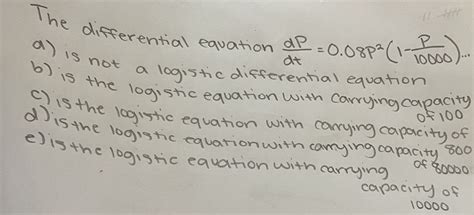 The differential equation dP/dt = 0.08P²(1 - P/10000)...
a) is not a logistic differential equation
b) is the logistic equation with carrying capacity of 100
c) is the logistic equation with carrying capacity of 800
d) is the logistic equation with carrying capacity of 80000
e) is the logistic equation with carrying capacity of 10000